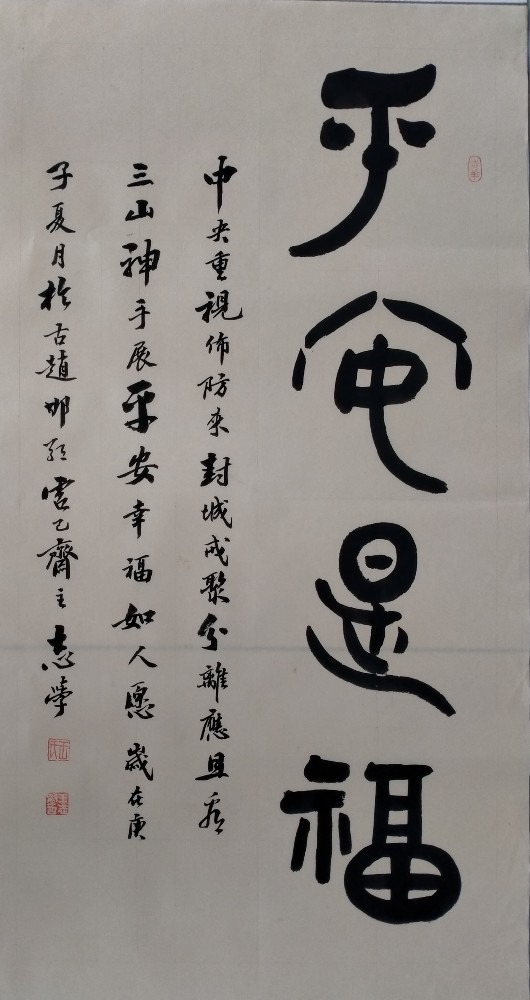 平安是福
中央重視佈防來封城成聚分離應且看
三山神手展平安幸福如人愿歲在庚
子夏月於古趙邯鄲雲乙齋主志學